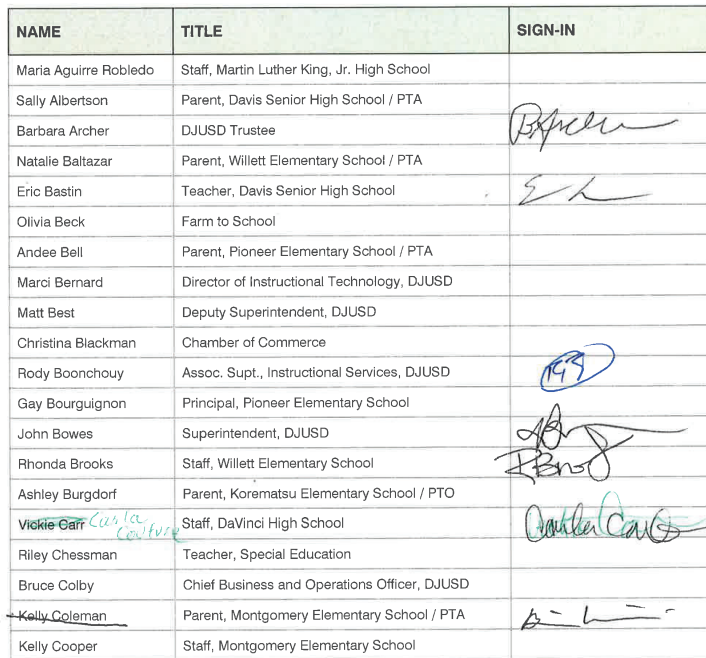 NAME TITLE SIGN-IN
Maria Aguirre Robledo Staff, Martin Luther King, Jr. High School
Sally Albertson Parent, Davis Senior High School / PTA
Barbara Archer DJUSD Trustee BArcher
Natalie Baltazar Parent, Willett Elementary School / PTA
Eric Bastin Teacher, Davis Senior High School
Olivia Beck Farm to School
Andee Bell Parent, Pioneer Elementary School / PTA
Marci Bernard Director of Instructional Technology, DJUSD
Matt Best Deputy Superintendent, DJUSD
Christina Blackman Chamber of Commerce
Rody Boonchouy Assoc. Supt., Instructional Services, DJUSD
Gay Bourguignon Principal, Pioneer Elementary School
John Bowes Superintendent, DJUSD
Rhonda Brooks Staff, Willett Elementary School
Ashley Burgdorf Parent, Korematsu Elementary School / PTO
Vickie Carr Carla Couture Staff, DaVinci High School
Riley Chessman Teacher, Special Education
Bruce Colby Chief Business and Operations Officer, DJUSD
Kelly Coleman Parent, Montgomery Elementary School / PTA
Kelly Cooper Staff, Montgomery Elementary School